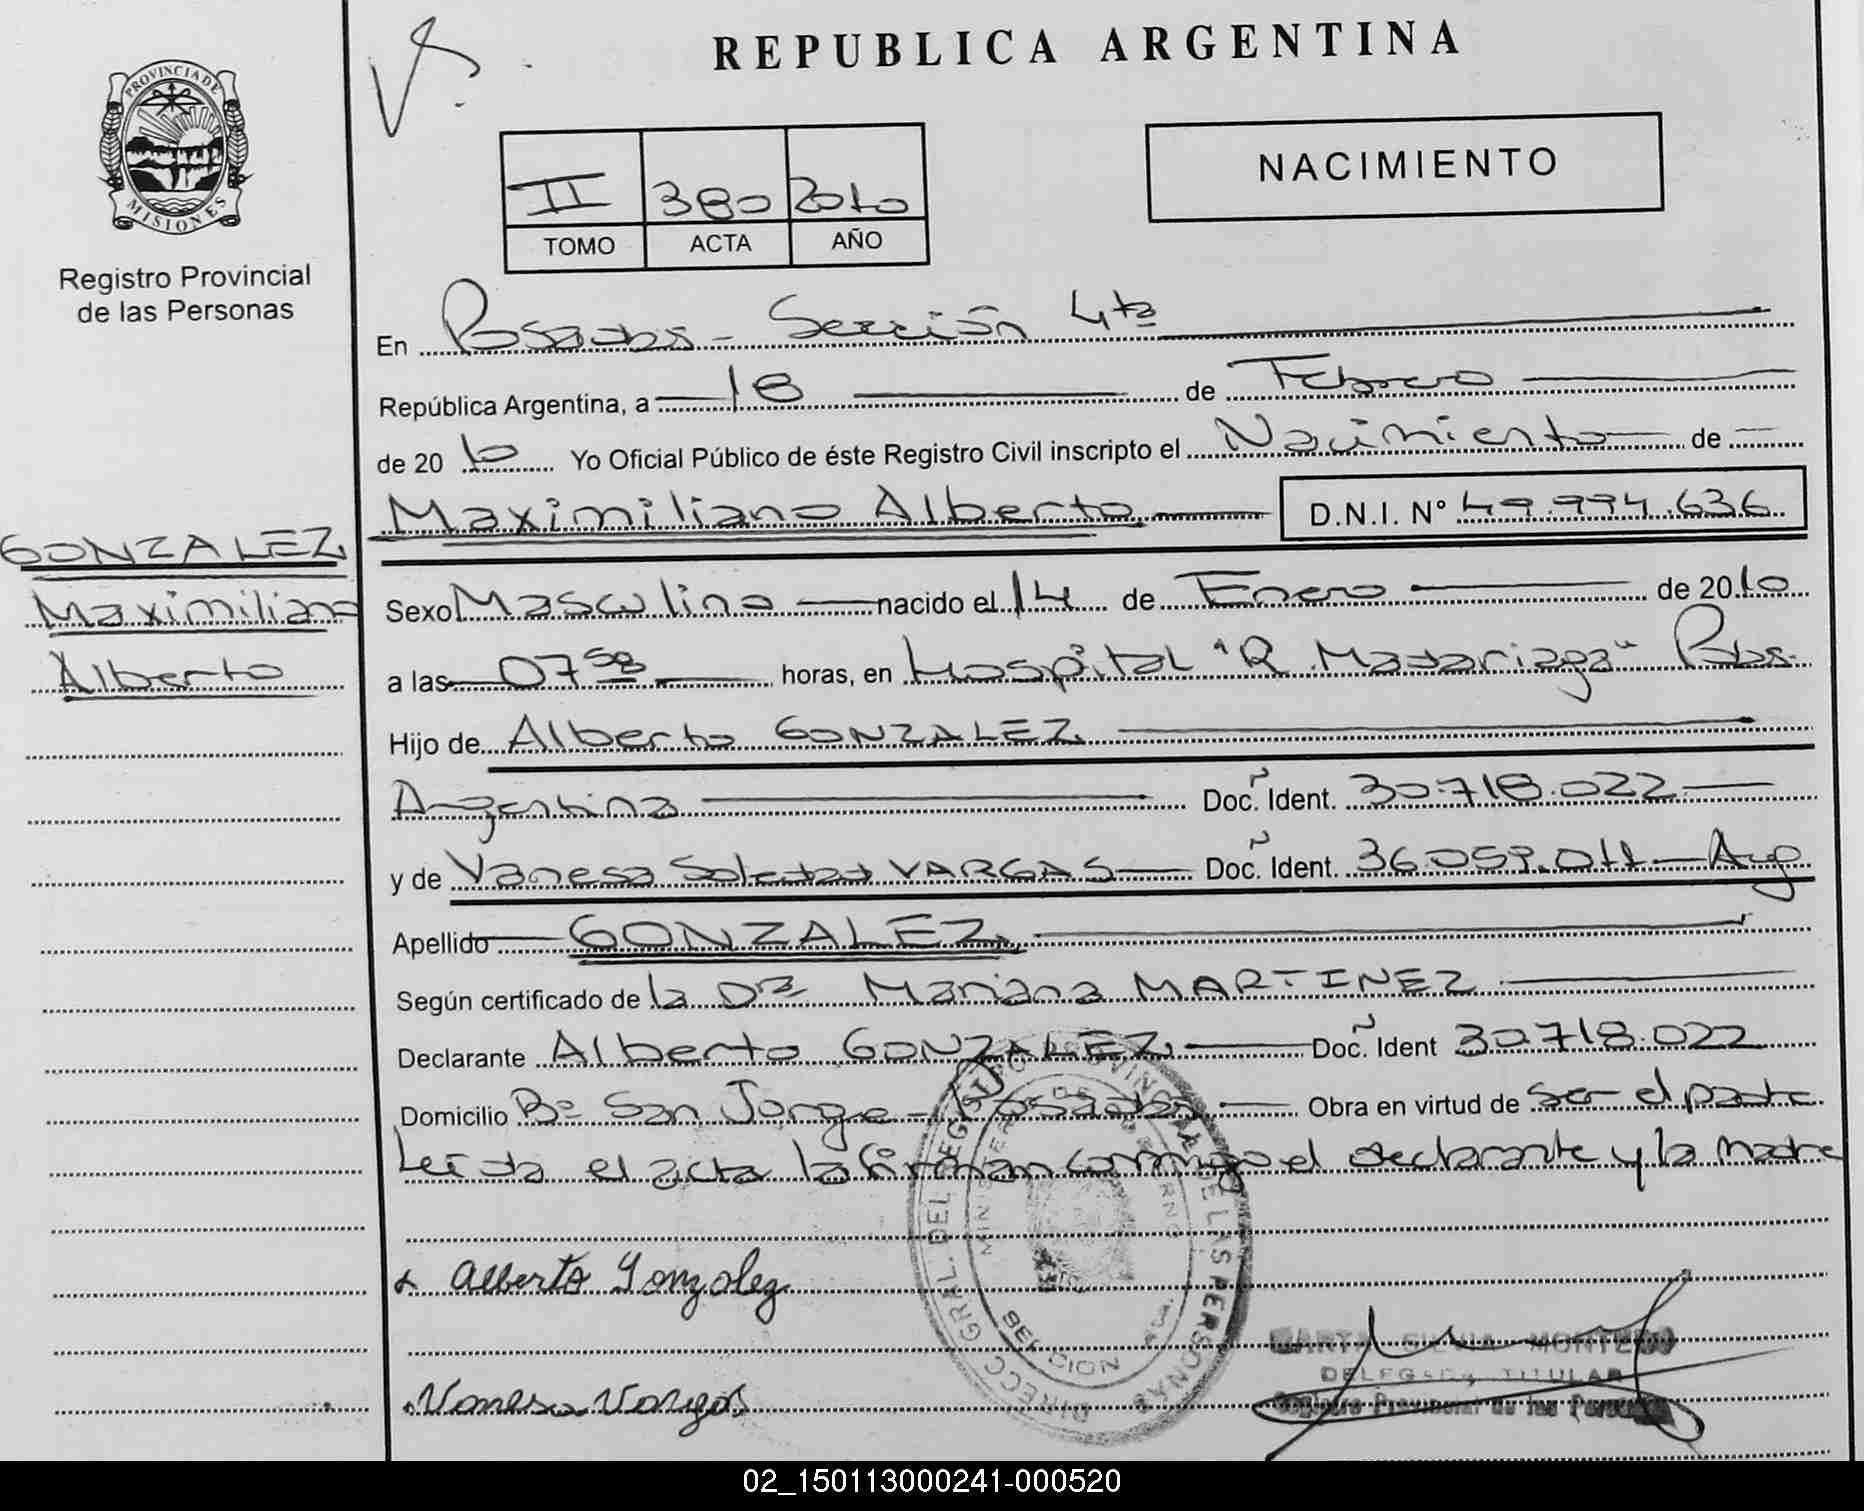 PROVINCIA DE
MISIONES
Registro Provincial
de las Personas
GONZALEZ
Maximiliano
Alberto
REPUBLICA ARGENTINA
II 380 2010
TOMO ACTA AÑO
NACIMIENTO
En Posadas - Sección 4ta
República Argentina, a 18 de Febrero
de 2010 Yo Oficial Público de éste Registro Civil inscripto el Nacimiento de
Maximiliano Alberto D.N.I. Nº 49.994.636
Sexo Masculino nacido el 14 de Enero de 2010
a las 07 58 horas, en Hospital "R. Madariaga" Pdas.
Hijo de Alberto GONZALEZ
Argentina Doc. Ident. 30.718.022
y de Vanesa Soledad VARGAS Doc. Ident. 36.059.011 - Arg
Apellido GONZALEZ
Según certificado de la Dra Mariana MARTINEZ
Declarante Alberto GONZALEZ Doc. Ident 30.718.022
Domicilio Bº San Jorge - Posadas Obra en virtud de ser el padre
Leída el acta la firman conmigo el declarante y la madre
Alberto Gonzalez
Vanesa Vargas
DIRECC. GRAL. DEL REGISTRO PROVINCIAL DE LAS PERSONAS
MARTA SILVIA MONTERO
DELEGADA TITULAR
Registro Provincial de las Personas
02_150113000241-000520